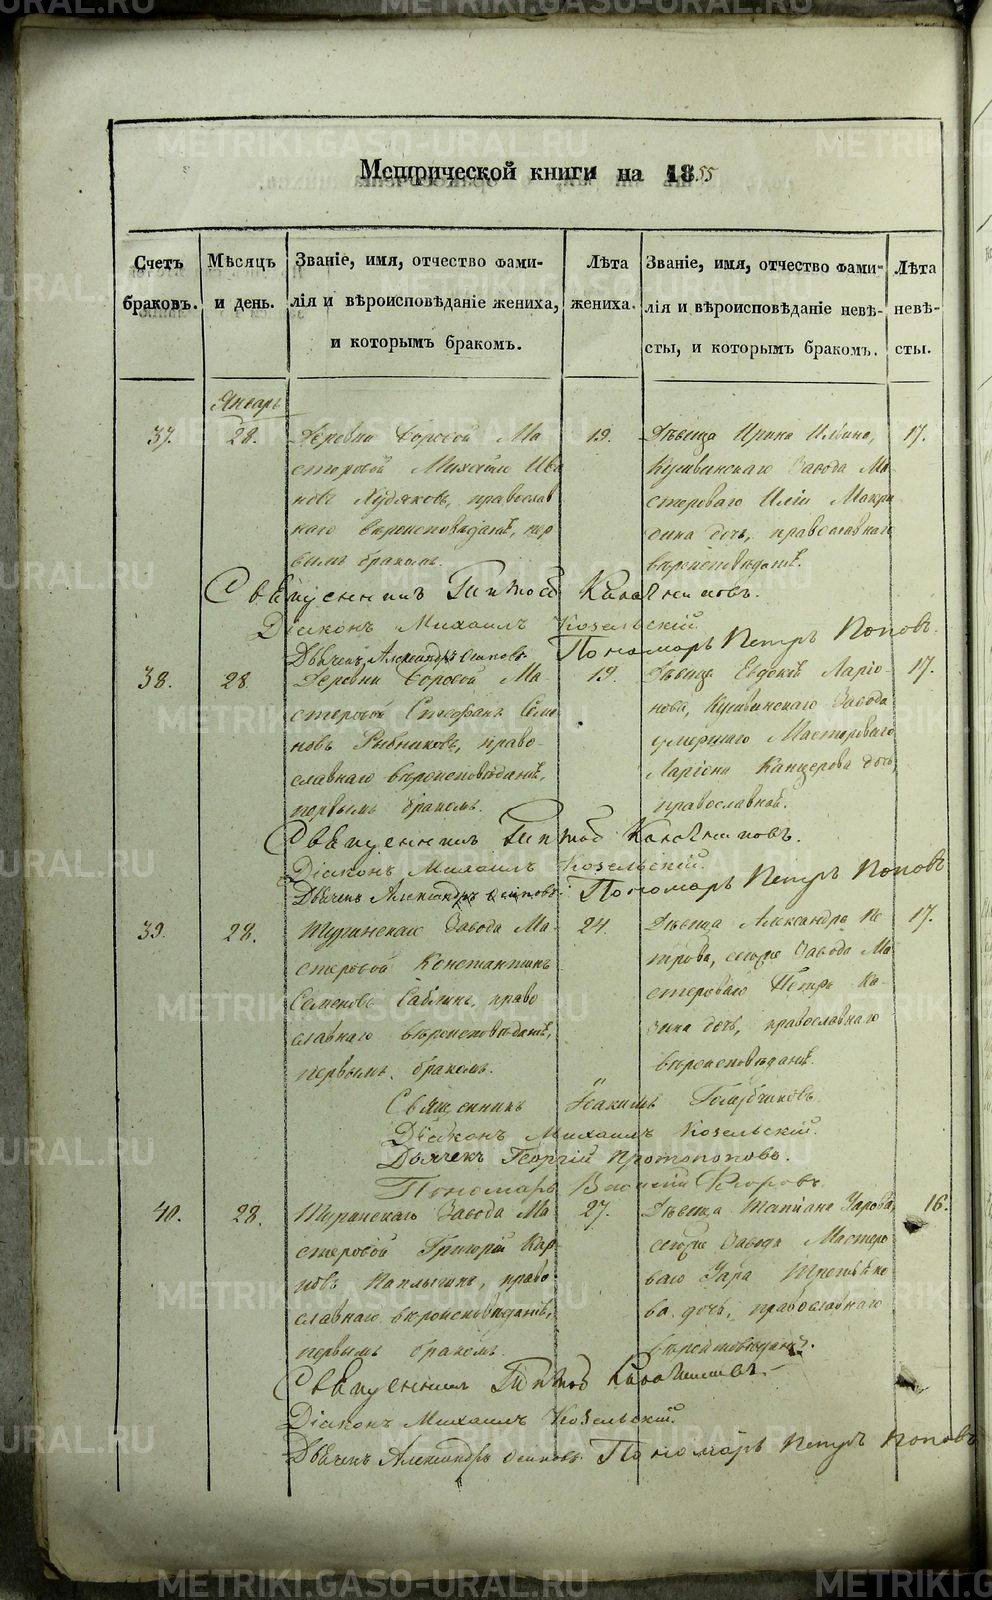 Метрической книги на 1855
Счетъ браковъ.
Мѣсяцъ и день.
Званіе, имя, отчество фами-
лія и вѣроисповѣданіе жениха,
и которымъ бракомъ.
Лѣта жениха.
Званіе, имя, отчество фами-
лія и вѣроисповѣданіе невѣ-
сты, и которымъ бракомъ.
Лѣта невѣ-
сты.
Январь
37. 28.
Деревни Боровой Ма-
стеровой Михаилъ Ива
новъ Худяковъ, православ
наго вѣроисповѣданія, пер
вымъ бракомъ.
19.
Дѣвица Ирина Ильина,
Кушвинскаго Завода Ма-
стероваго Иліи
дочь, православнаго
вѣроисповѣданія.
17.
Священникъ
Діаконъ Михаилъ Козельскій
Дьячекъ Александръ Осиповъ. Пономарь Петръ Поповъ.
38. 28.
Деревни Боровой Ма-
стеровой Стефанъ Семе
новъ Рыбниковъ, право-
славнаго вѣроисповѣданія,
первымъ бракомъ.
19.
Дѣвица Евдокія Ларіо-
нова, Кушвинскаго Завода
умершаго Мастероваго
Ларіона Канцерова дочь,
православной.
17.
Священникъ
Діаконъ Михаилъ Козельскій.
Дьячекъ Александръ Осиповъ. Пономарь Петръ Поповъ
39. 28.
Туринскаго Завода Ма-
стеровой Константинъ
Семеновъ Саблинъ, право
славнаго вѣроисповѣданія,
первымъ бракомъ.
24.
Дѣвица Александра Пе
трова, сегоже Завода Ма-
стероваго Петра Ко-
зина дочь, православнаго
вѣроисповѣданія.
17.
Священникъ Іоакимъ Голубчиковъ
Діаконъ Михаилъ Козельскій.
Дьячекъ Георгій Протопоповъ.
Пономарь Василій Егоровъ.
40. 28.
Туринскаго Завода Ма
стеровой Григорій Кар-
повъ Паплыгинъ, право-
славнаго вѣроисповѣданія,
первымъ бракомъ.
27.
Дѣвица Татіана Уарова,
сегоже Завода Мастеро
ваго Уара
ва дочь, православнаго
вѣроисповѣданія.
16.
Священникъ
Діаконъ Михаилъ Козельскій.
Дьячекъ Александръ Осиповъ. Пономарь Петръ Поповъ
METRIKI.GASO-URAL.RU